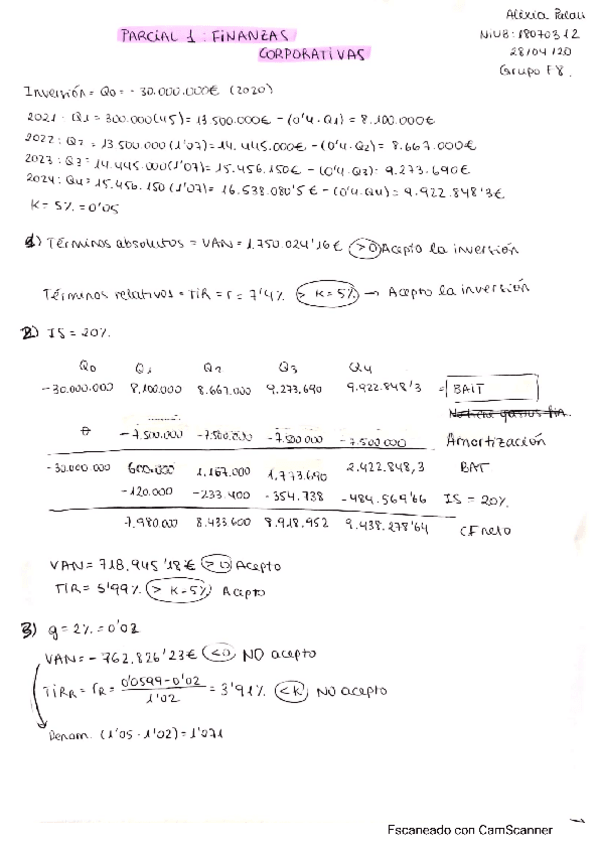 Alèxia Palau
PARCIAL 1: FINANZAS CORPORATIVAS
NIUB: 18070312
28/04/20
Grupo F8.
Inversión = Q0 = - 30.000.000€ (2020)
2021: Q1 = 300.000(45) = 13.500.000€ - (0'4·Q1) = 8.100.000€
2022: Q2 = 13.500.000(1'07) = 14.445.000€ - (0'4·Q2) = 8.667.000€
2023: Q3 = 14.445.000(1'07) = 15.456.150€ - (0'4·Q3) = 9.273.690€
2024: Q4 = 15.456.150(1'07) = 16.538.080'5€ - (0'4·Q4) = 9.922.848'3€
K = 5% = 0'05
1) Términos absolutos = VAN = 1.750.024'16€ >0 Acepto la inversión
Términos relativos = TIR = r = 7'4% > K=5% → Acepto la inversión
2) IS = 20%.
Q0 Q1 Q2 Q3 Q4
-30.000.000 8.100.000 8.667.000 9.273.690 9.922.848'3 = BAIT
No tiene gastos fin.
0 -7.500.000 -7.500.000 -7.500.000 -7.500.000 Amortización
-30.000.000 600.000 1.167.000 1.773.690 2.422.848,3 BAT
-120.000 -233.400 -354.738 -484.569'66 IS = 20%
7.980.000 8.433.600 8.918.952 9.438.278'64 CF neto
VAN = 718.945'18€ >0 Acepto
TIR = 5'99% > K=5% Acepto
3) g = 2% = 0'02
VAN = - 762.826'23€ <0 NO acepto
TIRR = rR = 0'0599-0'02 / 1'02 = 3'91% <K NO acepto
Denom. (1'05 · 1'02) = 1'071
Escaneado con CamScanner